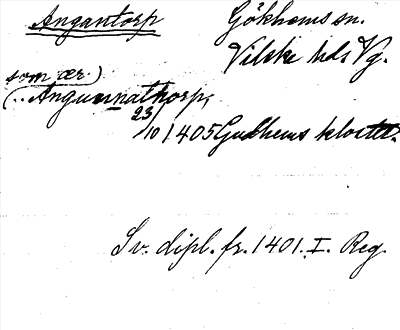 Angantorp Gökhems sn.
Vilske hds Vg.
som ær.)
(.. Angunnathorp,
23/10 1405 Gudhems kloster.
Sv. dipl. fr. 1401. I. Reg.